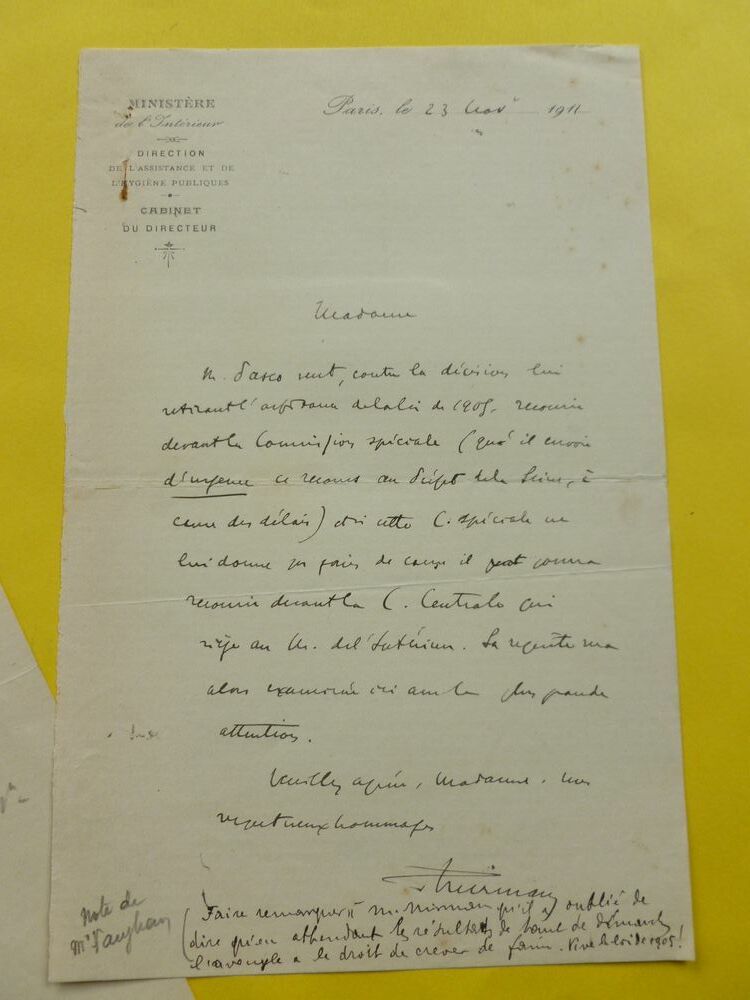 MINISTÈRE
de l'Intérieur
DIRECTION
DE L'ASSISTANCE ET DE
L'HYGIÈNE PUBLIQUES
CABINET
DU DIRECTEUR
Paris, le 23 Nov 1911
Madame
M. peut, contre la décision lui
retirant l' de la loi de 1905, recourir
devant la Commission spéciale (qu'il envoie
d'urgence ce recours au Préfet de la Seine, à
cause des délais) et si cette C. spéciale ne
lui donne pas gain de cause il pourra
recourir devant la C. Centrale qui
siège au M. de l'Intérieur. Sa requête sera
alors examinée ici avec la plus grande
attention.
Veuillez agréer, Madame, mes
respectueux hommages
Mirman
Note de
Mr Vaughan
(Faire remarquer à M. Mirman qu'il a oublié de
dire qu'en attendant les résultats de tant de démarches
l'aveugle a le droit de crever de faim. Vive la loi de 1905!